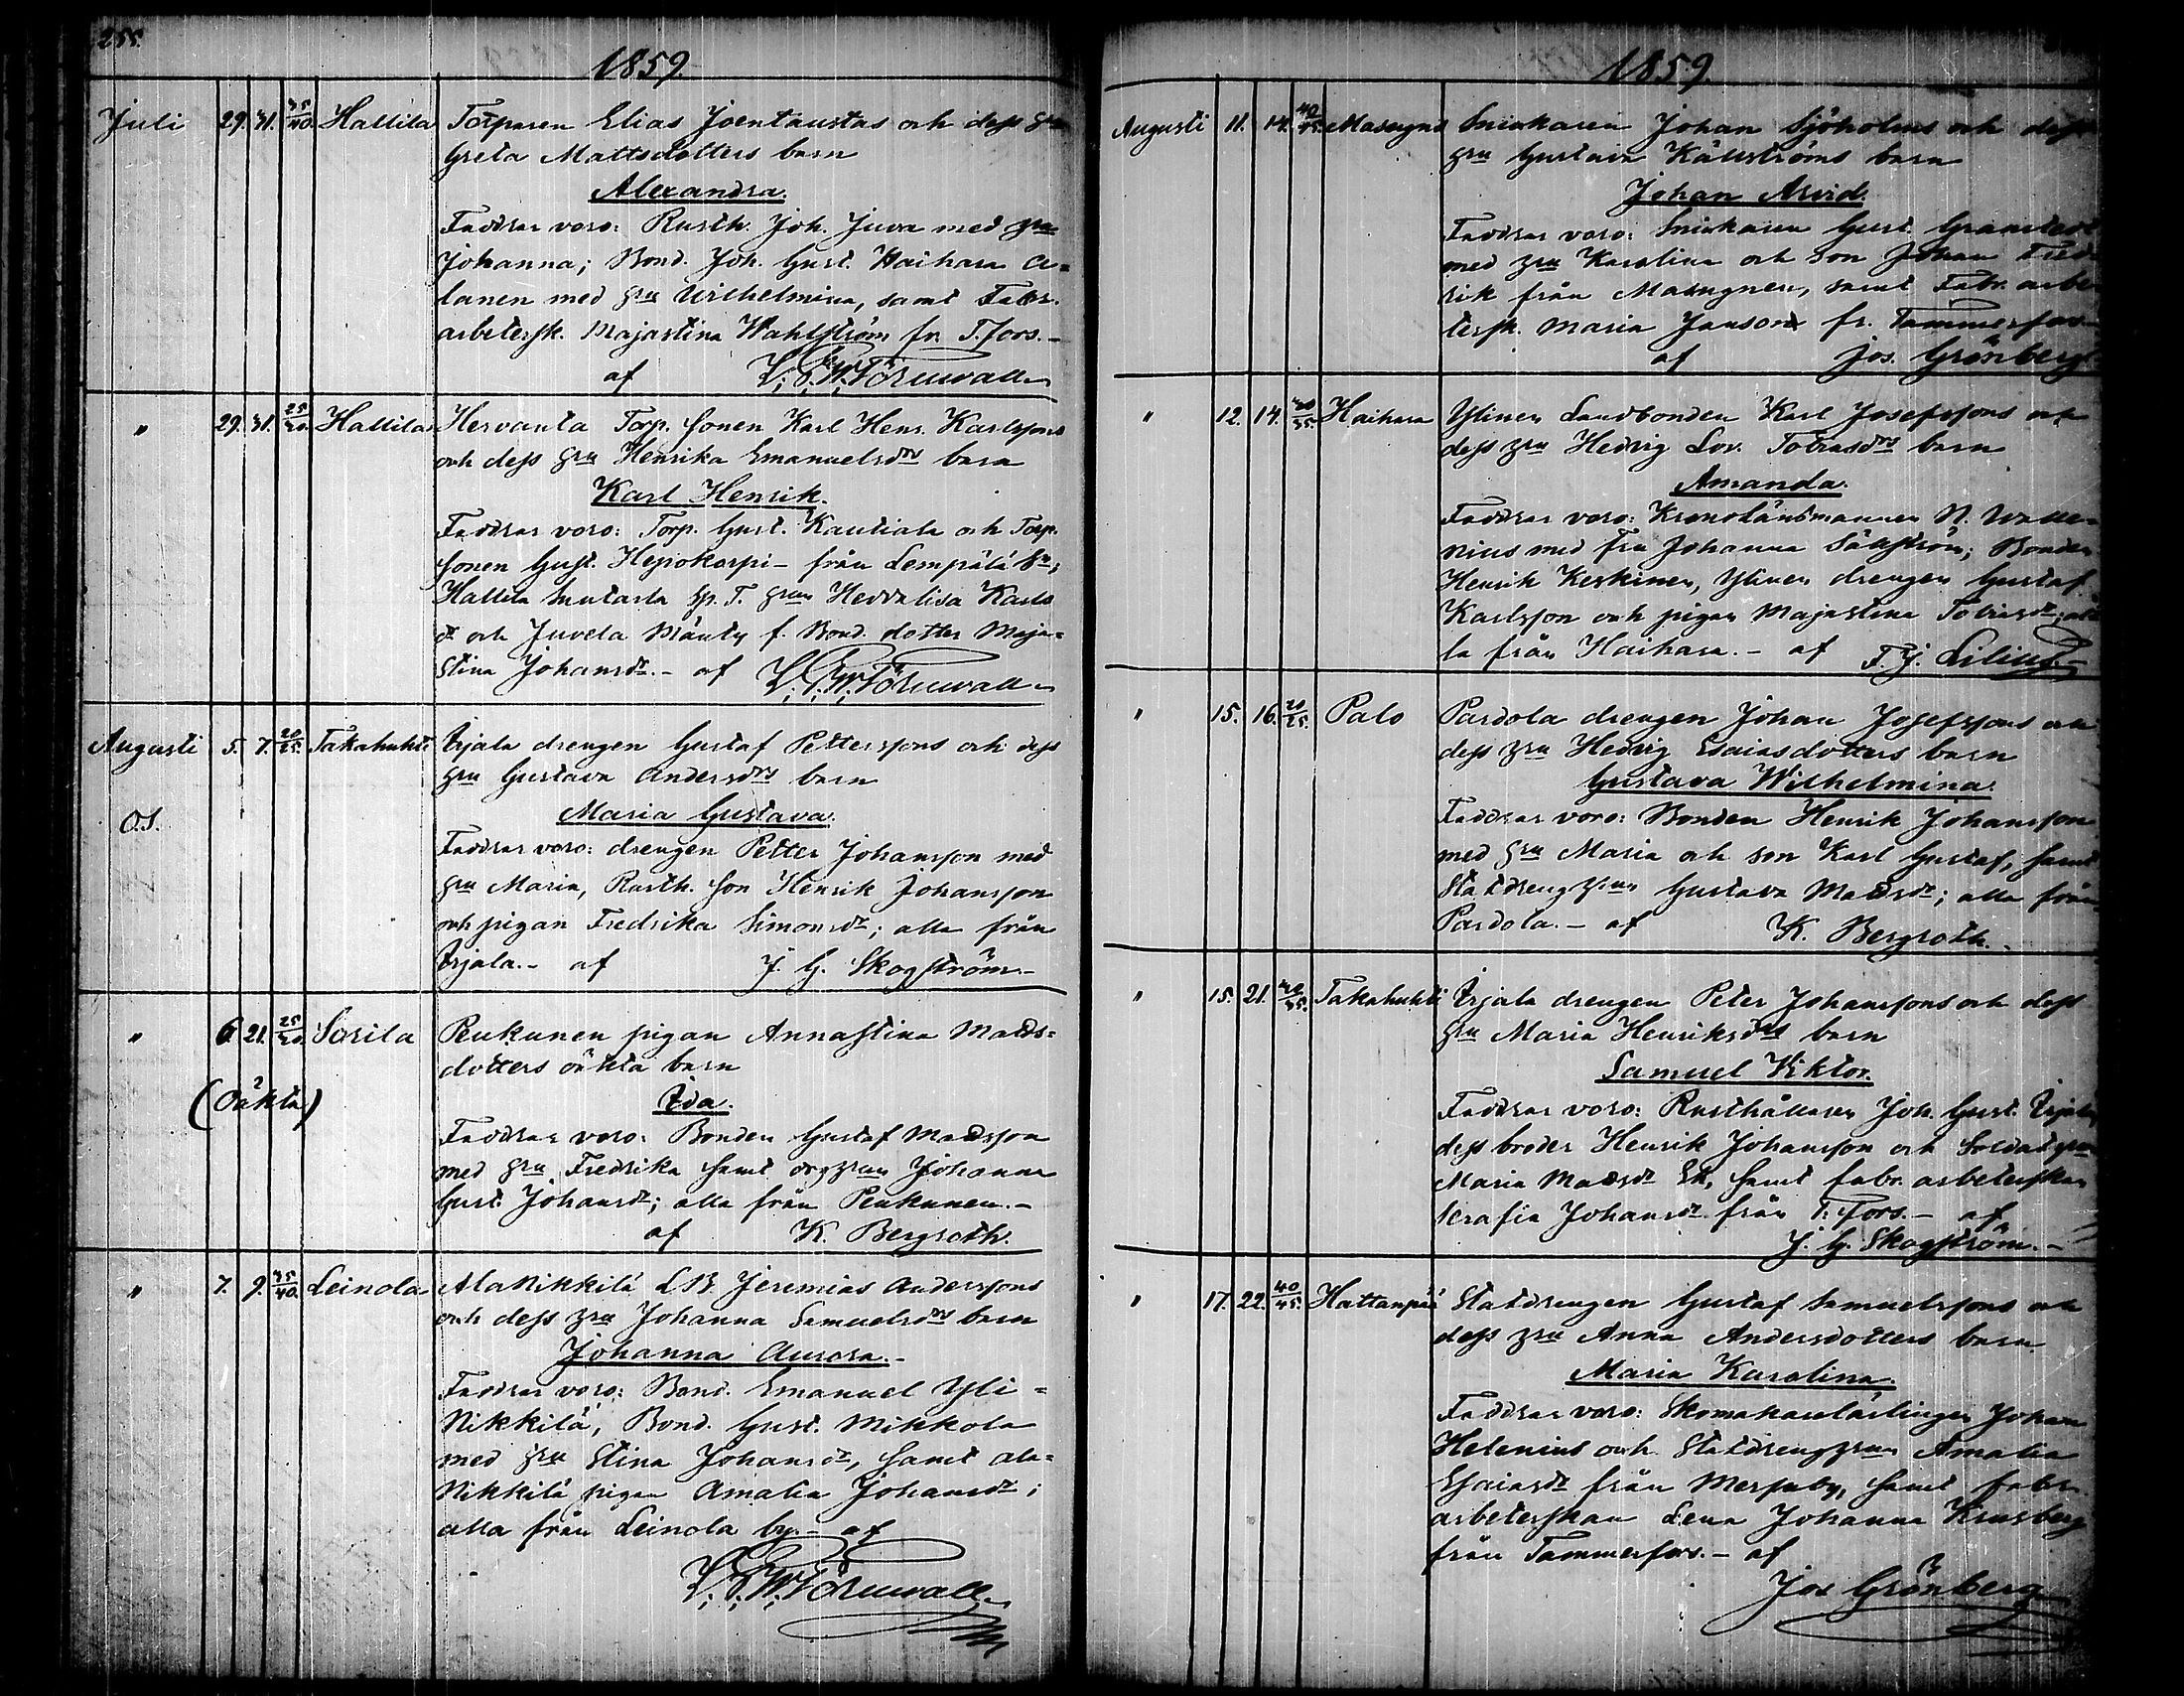 255.
1859.
Juli 29. 31. 35/40. Hallila Torparen Elias Joentaustas och dess hu
Greta Mattsdotters barn
Alexandra.
Faddrar voro: Rusth. Joh. Juva med hru
Johanna; Bond. Joh. Gust. Haihara A=
lanen med hru Wilhelmina, samt Fabr.
arbetersk. Majastina Wahlström fr. T.fors.-
af
" 29. 31. 25/30. Hallila Hervanta Torp. sonen Karl Henr. Karlssons
och dess hru Henrika Emanuelsdrs barn
Karl Henrik.
Faddrar voro: Torp. Gust. Kautiala och Torp.
sonen Gust. Hepokorpi - från Lempälä
Hallila Sp. T. hrun Heddalisa Karls
dr och Juvela Mänty f. Bond. dotter Maja=
stina Johansdr.- af
Augusti 5. 7. 20/25. Takahuhti Irjala drengen Gustaf Petterssons och dess
hru Gustava Andersdrs barn
O.S.
Maria Gustava.
Faddrar voro: drengen Petter Johansson med
hru Maria, Rusth. son Henrik Johansson
och pigan Fredrika Simonsdr; alla från
Irjala.- af J. G. Skogström.-
" 6. 21. 25/30. Sorila Peukunen pigan Annastina Mads=
dotters oäkta barn
(Oäkta)
Ida.
Faddrar voro: Bonden Gustaf Madsson
med hru Fredrika samt drghrun Johanna
Gust. Johansdr; alla från Peukunen.-
af K. Bergroth.
" 7. 9. 35/40. Leinola AlaNikkilä LB. Jeremias Anderssons
och dess hru Johanna Samuelsdrs barn
Johanna Aurora.-
Faddrar voro: Bond. Emanuel Yli=
Nikkilä, Bond. Gust. Mikkola
med hru Stina Johansdr, samt ala=
Nikkilä pigan Amalia Johansdr;
alla från Leinola by.- af
1859.
Augusti 11. 14. 40/45. Masugns Snickaren Johan Sjöholms och dess
hru Gustava Källströms barn
Johan Arvid.
Faddrar voro: Snickaren Gust. Granstedt
med hru Karolina och son Johan Fred=
rik från Masugnen, samt Fabr. arbe=
tersk. Maria Janson fr. Tammerfors.-
af Jos. Grönberg
" 12. 14. 30/35. Haihara Ylinen Landbonden Karl Josefssons och
dess hru Hedvig Lov. Tobiasdrs barn
Amanda.
Faddrar voro: Kronolänsmannen N. Walle=
nius med fru Johanna Sällström; Bonden
Henrik Keskinen, Ylinen drengen Gustaf
Karlsson och pigan Majastina Tobiasdr; al=
la från Haihara.- af F. J. Lilius.-
" 15. 16. 20/25. Palo Pardola drengen Johan Josefssons och
dess hru Hedvig Esaiasdotters barn
Gustava Wilhelmina.
Faddrar voro: Bonden Henrik Johansson
med hru Maria och son Karl Gustaf, samt
Statdrenghrun Gustava Madsdr; alla från
Pardola.- af K. Bergroth.-
" 15. 21. 30/35. Takahuhti Irjala drengen Peter Johanssons och dess
hru Maria Henriksdrs barn
Samuel Viktor.
Faddrar voro: Rusthållaren Joh. Gust. Irjala,
dess broder Henrik Johansson och Soldathru
Maria Madsdr Ek, samt fabr. arbeterskan
Serafia Johansdr från T.Fors.- af
J. G. Skogström.-
" 17. 22. 40/45. Hattanpää Statdrengen Gustaf Samuelssons och
dess hru Anna Andersdotters barn
Maria Karolina.
Faddrar voro: Skomakarelärlingen Johan
Helenius och Statdrenghrun Amalia
Esaiasdr från Messuby, samt fabr.
arbeterskan Lena Johanna Krusberg
från Tammerfors.- af
Jos Grönberg